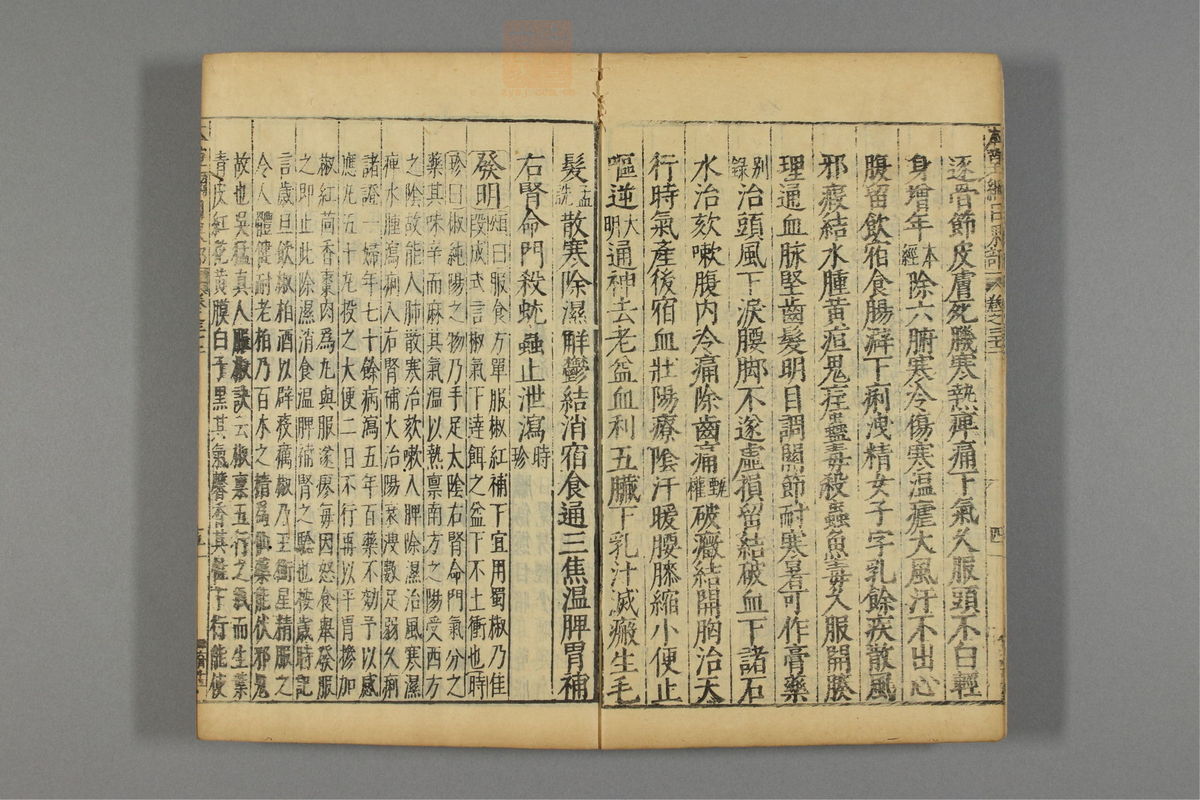 逐骨節皮膚死肌寒熱痺痛下氣久服頭不白輕
身增年本經除六腑寒冷傷寒溫瘧大風汗不出心
腹留飲宿食腸澼下痢洩精女子字乳餘疾散風
邪瘕結水腫黃疸鬼疰蠱毒殺蟲魚毒久服開腠
理通血脉堅齒髮明目調關節耐寒暑可作膏藥
别錄治頭風下淚腰脚不遂虛損留結破血下諸石
水治欬嗽腹内冷痛除齒痛甄權破癥結開胸治天
行時氣產後宿血壯陽療陰汗暖腰膝縮小便止
嘔逆大明通神去老益血利五臟下乳汁滅瘢生毛
髮孟詵散寒除濕解鬱結消宿食通三焦溫脾胃補
右腎命門殺蚘蟲止泄瀉時珍
發明頌曰服食方單服椒紅補下宜用蜀椒乃佳
段成式言椒氣下達餌之益下不上衝也時
珍曰椒純陽之物乃手足太陰右腎命門氣分之
藥其味辛而麻其氣溫以熱禀南方之陽受西方
之陰故能入肺散寒治欬嗽入脾除濕治風寒濕
痺水腫瀉痢入右腎補火治陽衰溲數足弱久痢
諸證一婦年七十餘病瀉五年百藥不効予以感
應丸五十丸投之大便二日不行再以平胃散加
椒紅茴香棗肉為丸與服遂瘳每因怒食舉發服
之即止此除濕消食溫脾補腎之驗也按歲時記
言歲旦飲椒柏酒以辟疫癘椒乃玉衡星精服之
令人體健耐老柏乃百木之精爲仙藥能伏邪鬼
故也吳猛真人服椒訣云椒禀五行之氣而生葉
青皮紅花黃膜白子黑其氣馨香其性下行能使